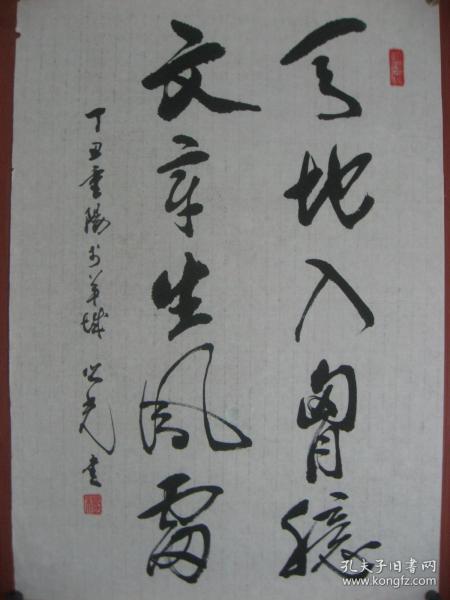 天地入胷臆
文章生风雷
丁丑重阳于羊城 书
孔夫子旧书网
www.kongfz.com